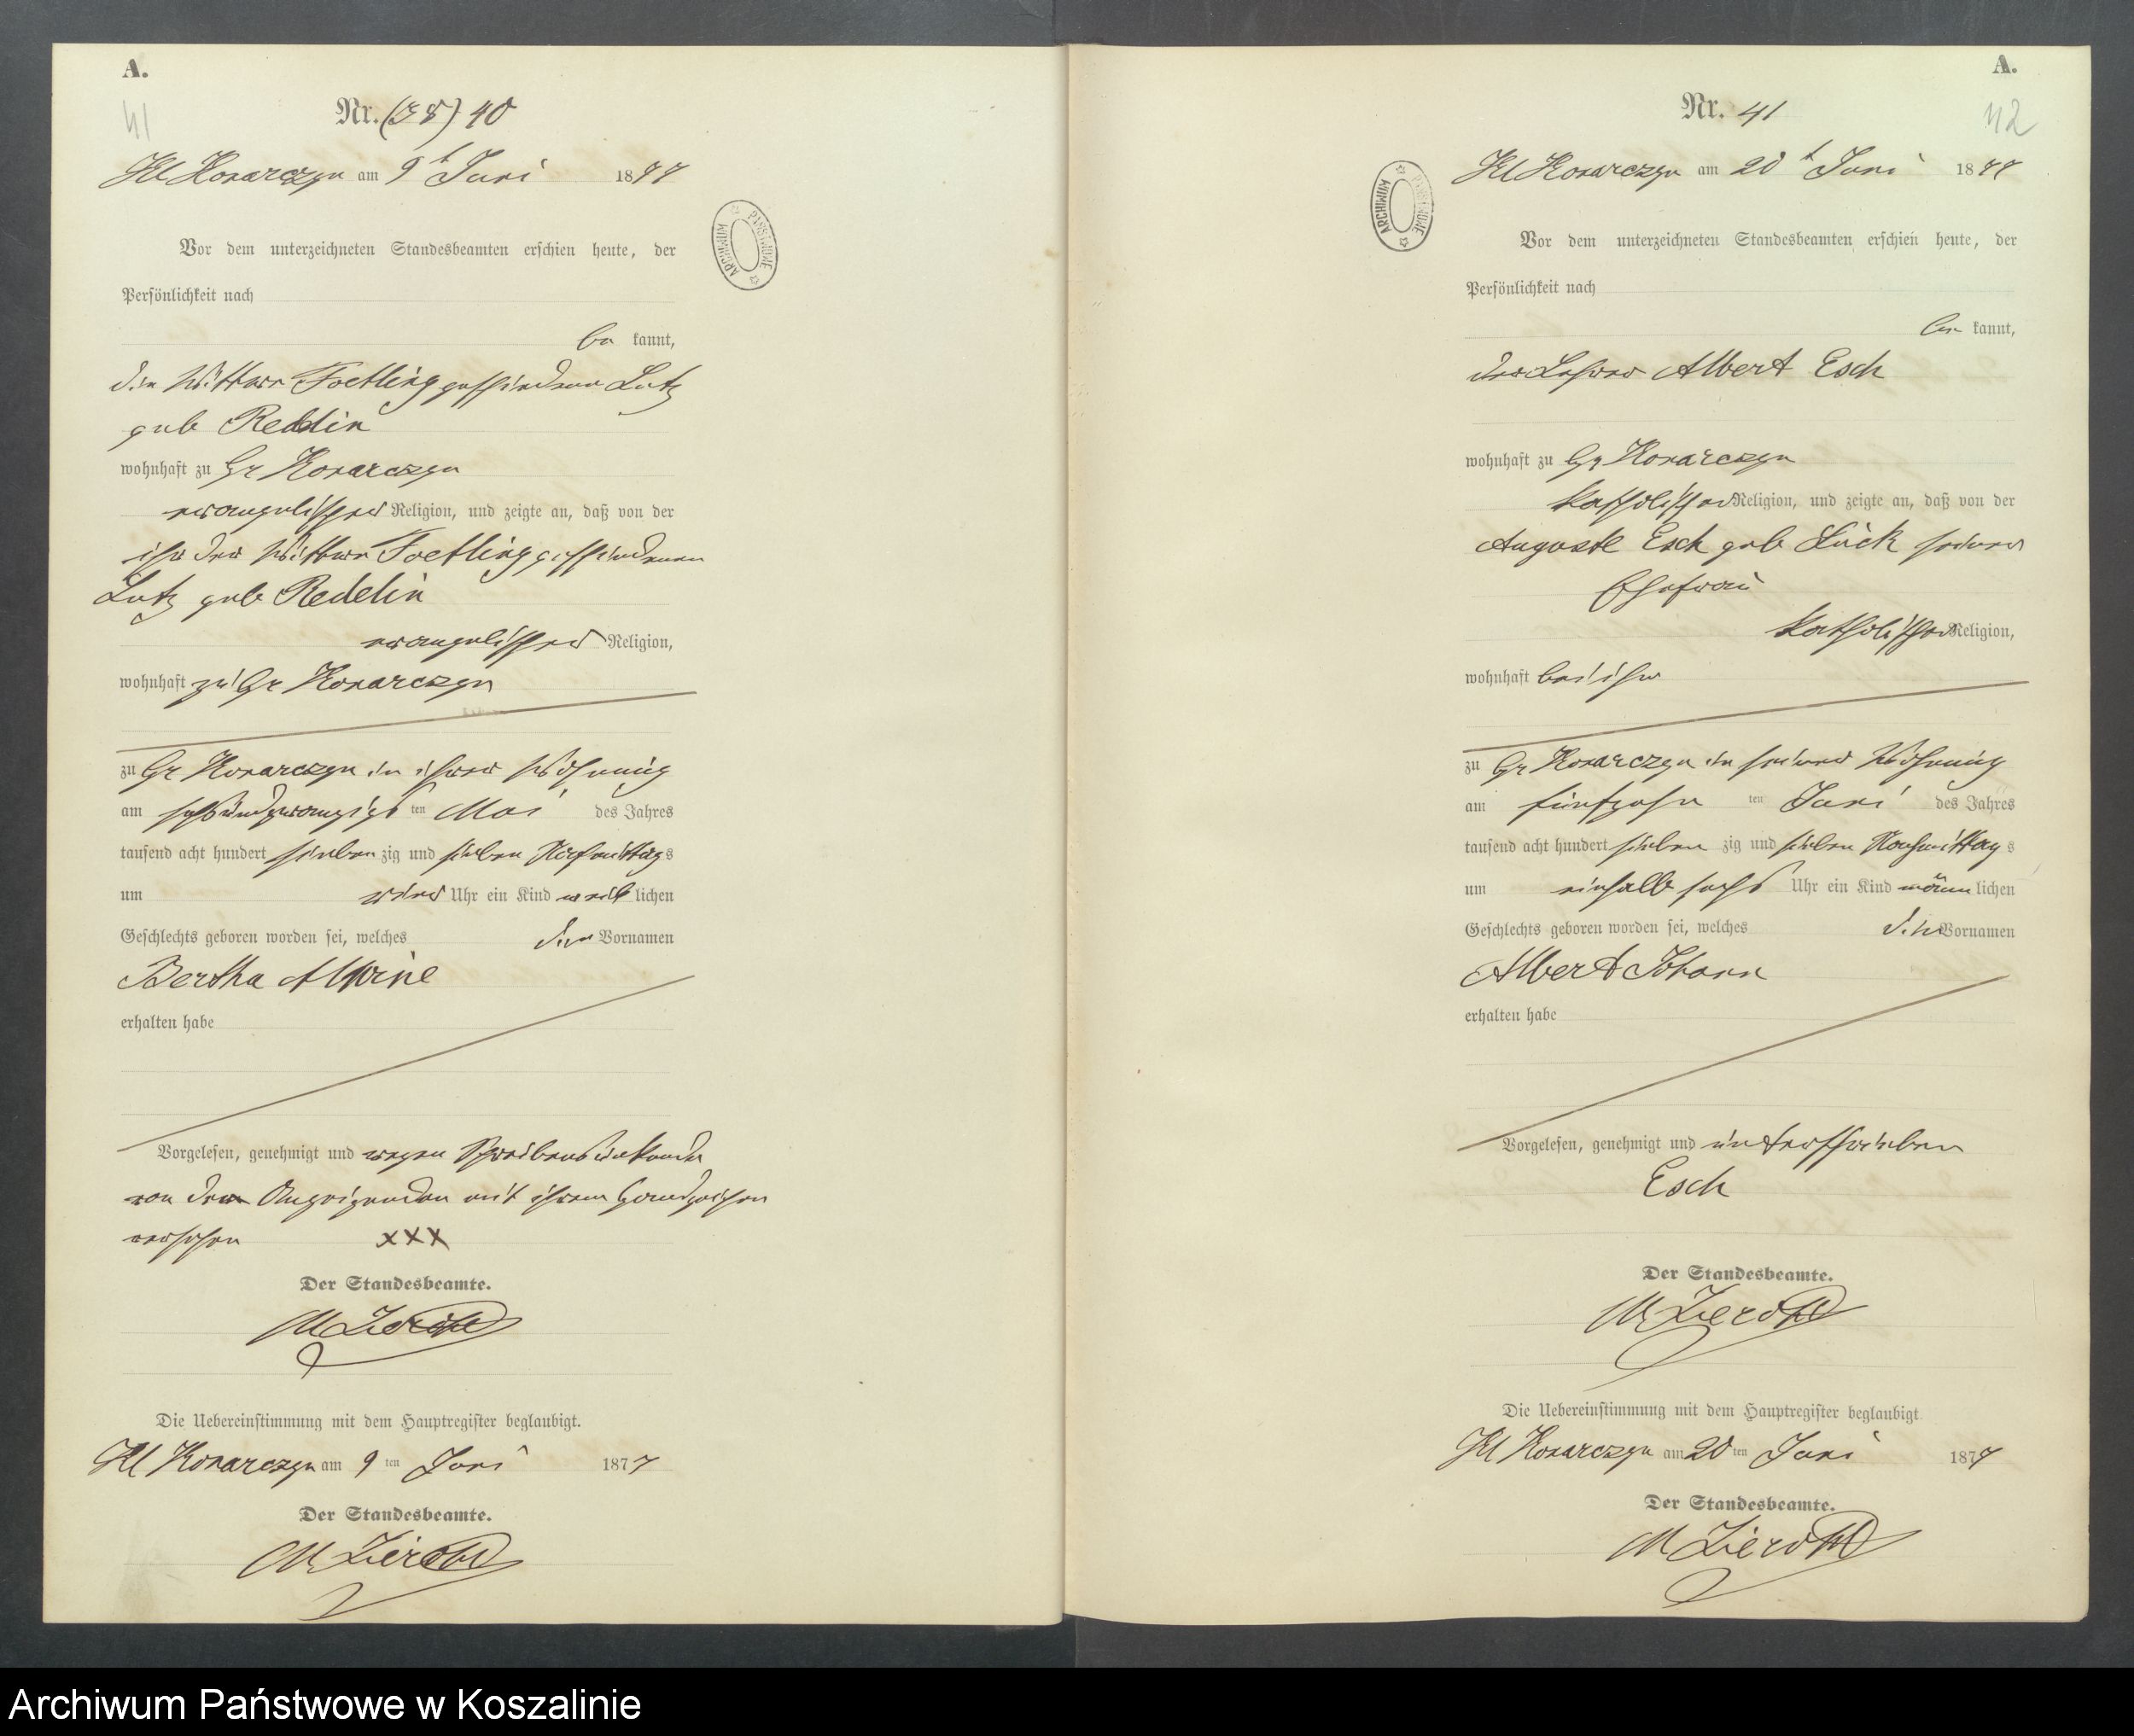 A.
41
Nr. (38) 40
Kl Konarczyn am 9t Juni 1877
Vor dem unterzeichneten Standesbeamten erschien heute, der
Persönlichkeit nach
be kannt,
die Wittwe Foetling geschiedene Lutz
geb Reddin
wohnhaft zu Gr Konarczyn
evangelischer Religion, und zeigte an, daß von der
ihr der Wittwe Foetling geschiedenen
Lutz geb Reddin
evangelischer Religion,
wohnhaft zu Gr Konarczyn
zu Gr Konarczyn in ihrer Wohnung
am sechsundzwanzigs ten Mai des Jahres
tausend acht hundert sieben zig und sieben Nachmittags
um vier Uhr ein Kind weib lichen
Geschlechts geboren worden sei, welches den Vornamen
Bertha Alwine
erhalten habe
Vorgelesen, genehmigt und wegen Schreibensunkunde
von der Anzeigenden mit ihrem Handzeichen
versehen XXX
Der Standesbeamte.
M Zieroth
Die Uebereinstimmung mit dem Hauptregister beglaubigt.
Kl Konarczyn am 9 ten Juni 1877
Der Standesbeamte.
M Zieroth
ARCHIWUM PAŃSTWOWE
A.
42
Nr. 41
Kl Konarczyn am 20t Juni 1877
Vor dem unterzeichneten Standesbeamten erschien heute, der
Persönlichkeit nach
be kannt,
der Lehrer Albert Esch
wohnhaft zu Gr Konarczyn
katholischer Religion, und zeigte an, daß von der
Auguste Esch geb Lück seiner
Ehefrau
katholischer Religion,
wohnhaft bei ihm
zu Gr Konarczyn in seiner Wohnung
am fünfzehn ten Juni des Jahres
tausend acht hundert sieben zig und sieben Nachmittags
um einhalb sechs Uhr ein Kind männ lichen
Geschlechts geboren worden sei, welches die Vornamen
Albert Johann
erhalten habe
Vorgelesen, genehmigt und unterschrieben
Esch
Der Standesbeamte.
M Zieroth
Die Uebereinstimmung mit dem Hauptregister beglaubigt
Kl Konarczyn am 20 ten Juni 1877
Der Standesbeamte.
M Zieroth
ARCHIWUM PAŃSTWOWE
Archiwum Państwowe w Koszalinie